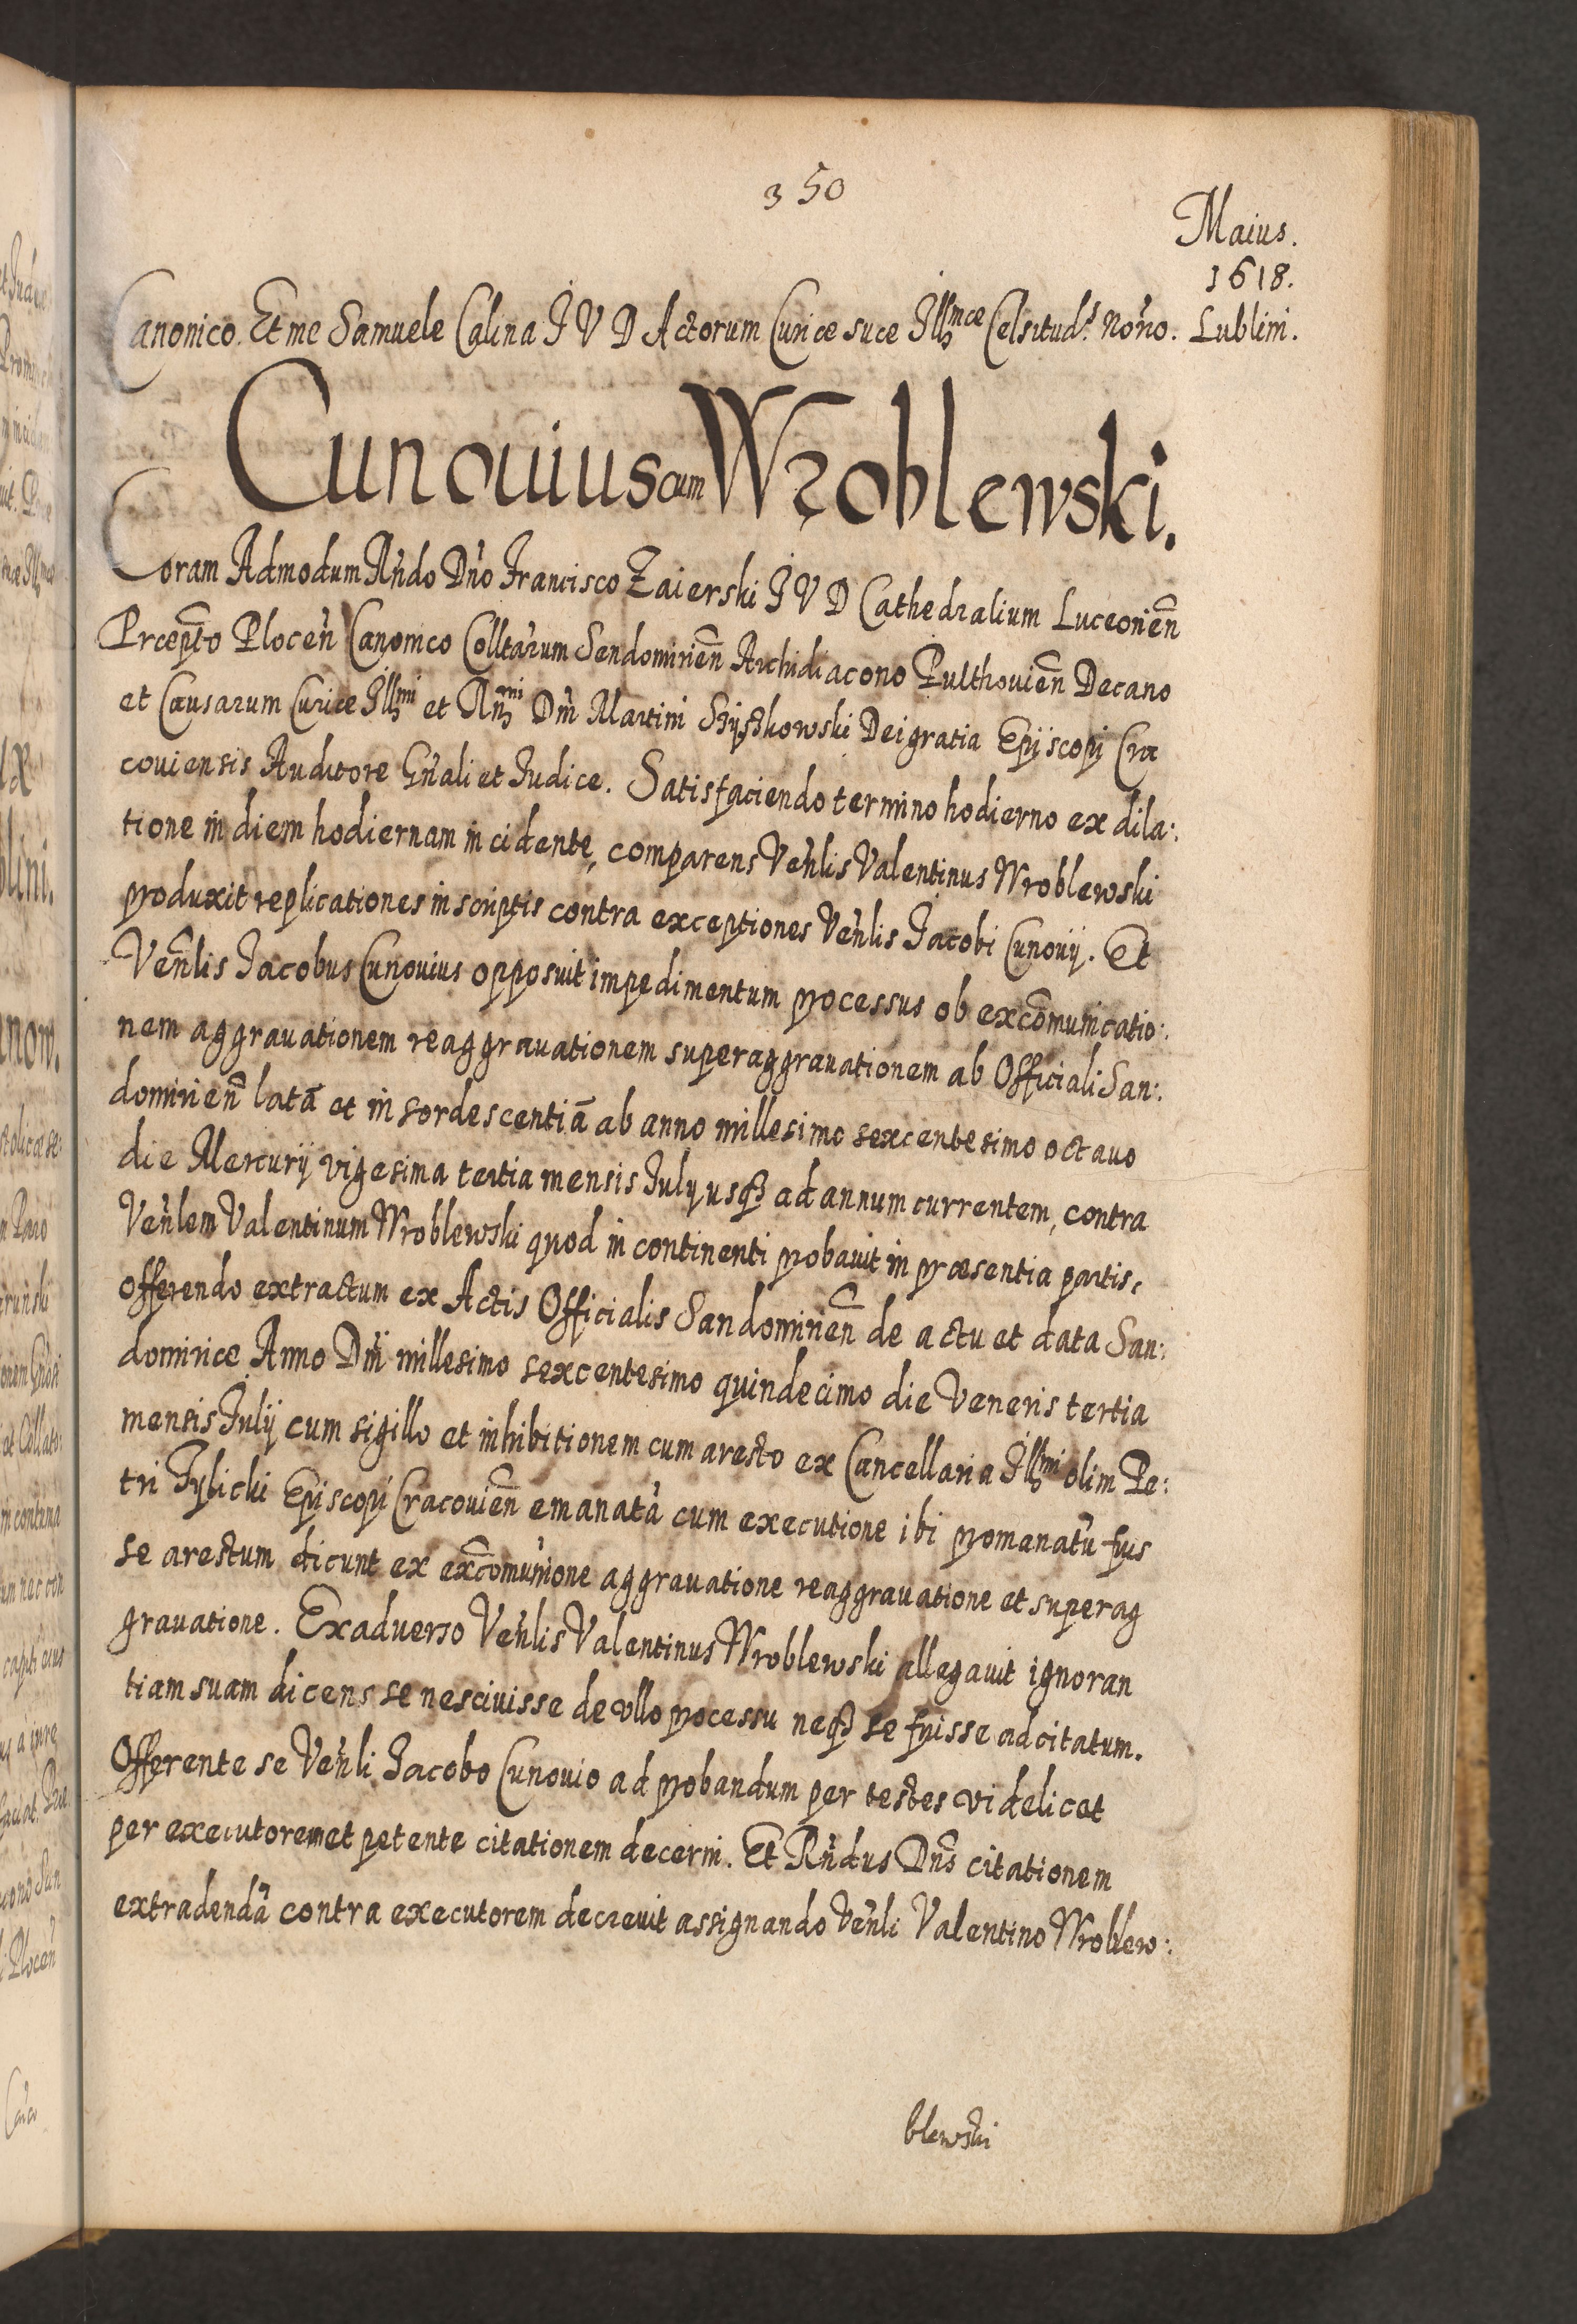 350
Maius.
1618.
Lublini.
Canonico. Et me Samuele Calina J V D Actorum Curiæ suæ Illmæ Celsitud. Noño.
Cunouius cum Wroblewski.
Coram Admodum Rńdo Dńo Francisco Zaierski J V D Cathedralium Luceorien̄
Præep̄to Plocen̄ Canonico Colltarum Sendomirien̄ Archidiacono Pulthouien̄ Decano
et Causarum Curiæ Illmi et Rn̄mi Dn̄i Martini Szyszkowski Dei gratia Episcopi Cra
couiensis Auditore Gn̄ali et Judice. Satisfaciendo termino hodierno ex dila:
tione in diem hodiernam incidente, comparens Ven̄lis Valentinus Wroblewski
produxit replicationes in scriptis contra exceptiones Ven̄lis Jacobi Cunouij. Et
Ven̄lis Jacobus Cunouius opposuit impedimentum processus ob excōmunicatio:
nem aggrauationem reaggrauationem superaggrauationem ab Officiali San:
domirien̄ latā et insordescentiā ab anno millesimo sexcentesimo octauo
die Mercurij vigesima tertia mensis July usqȝ ad annum currentem, contra
Ven̄lem Valentinum Wroblewski quod in continenti probauit in præsentia partis,
offerendo extractum ex Actis Officialis Sandomirien̄ de actu et data San:
domiriæ Anno Dn̄i millesimo sexcentesimo quindecimo die Veneris tertia
mensis Julij cum sigillo et inhibitionem cum aresto ex Cancellaria Illmi olim Pe:
tri Tylicki Episcopi Cracouien̄ emanatā cum executione ibi promanatū fuis
se arestum dicunt ex excōmunione aggrauatione reaggrauatione et superag
grauatione. Exaduerso Ven̄lis Valentinus Wroblewski allegauit ignoran
tiam suam dicens se nesciuisse de vllo processu neqȝ se fuisse adcitatum.
Offerente se Ven̄li Jacobo Cunouio ad probandum per testes videlicet
per executorem et petente citationem decerni. Et Rn̄dus Dn̄s citationem
extradendā contra executorem decreuit assignando Ven̄li Valentino Wroblew:
blewski